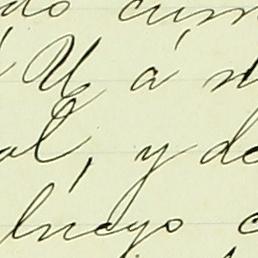 do cum
U á n
al, y de
luego c